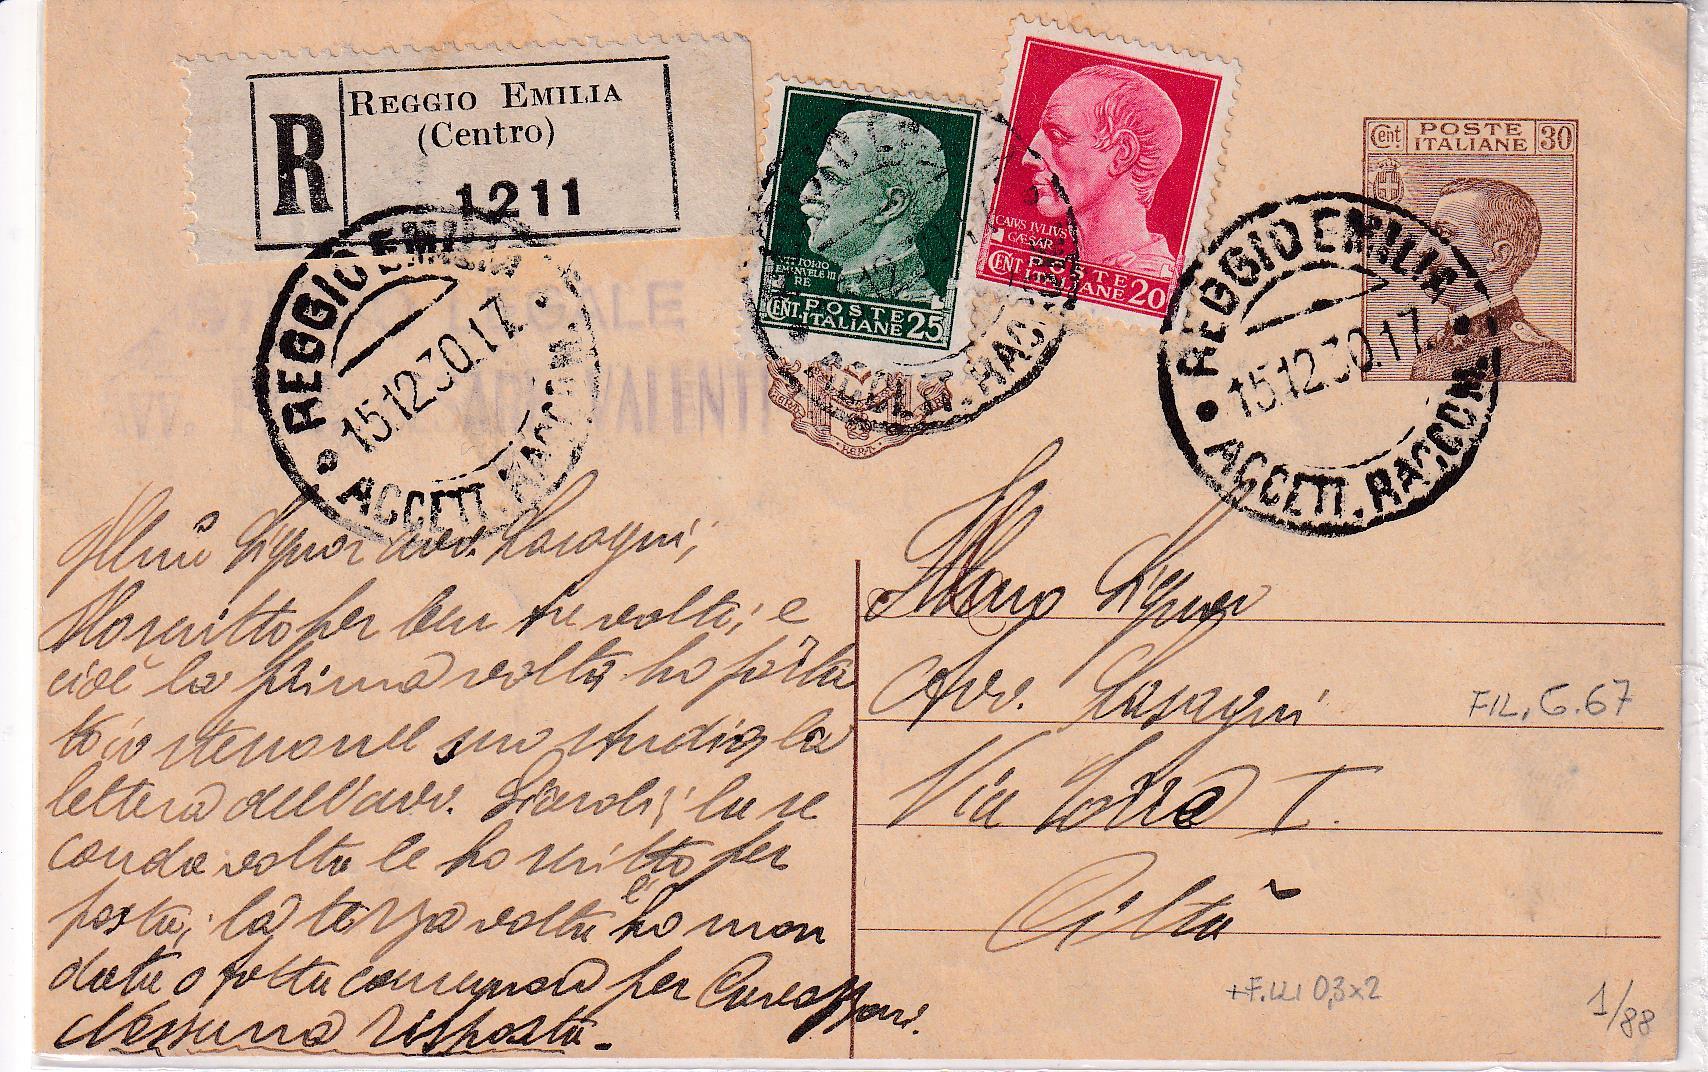 R
REGGIO EMILIA
(Centro)
1211
VITTORIO
EMANUELE III
RE
CENT. POSTE
ITALIANE 25
CAIUS IULIUS
CÆSAR
CENT POSTE
ITALIANE 20
Cent POSTE
ITALIANE 30
LEGALE
VALENTI
REGGIO EMILIA
15.12.30.17
ACCETT. RACCOM.
ACCETT. RACCOM.
REGGIO EMILIA
15.12.30.17
ACCETT. RACCOM.
F.E.R.T.
Illmo Signor avv. Lasagni,
Ho scritto per ben tre volte; e
cioè la prima volta ho porta
to io stesso nel suo studio, la
lettera dell'avv. la se
conda volta le ho scritto per
posta; la terza volta le ho man
data o fatta consegnare per
Nessuna risposta.
Illmo Signor
Avv. Lasagni
Via Torre I.
Città
FIL. G.67
+F.LLI 0,3x2
1/88